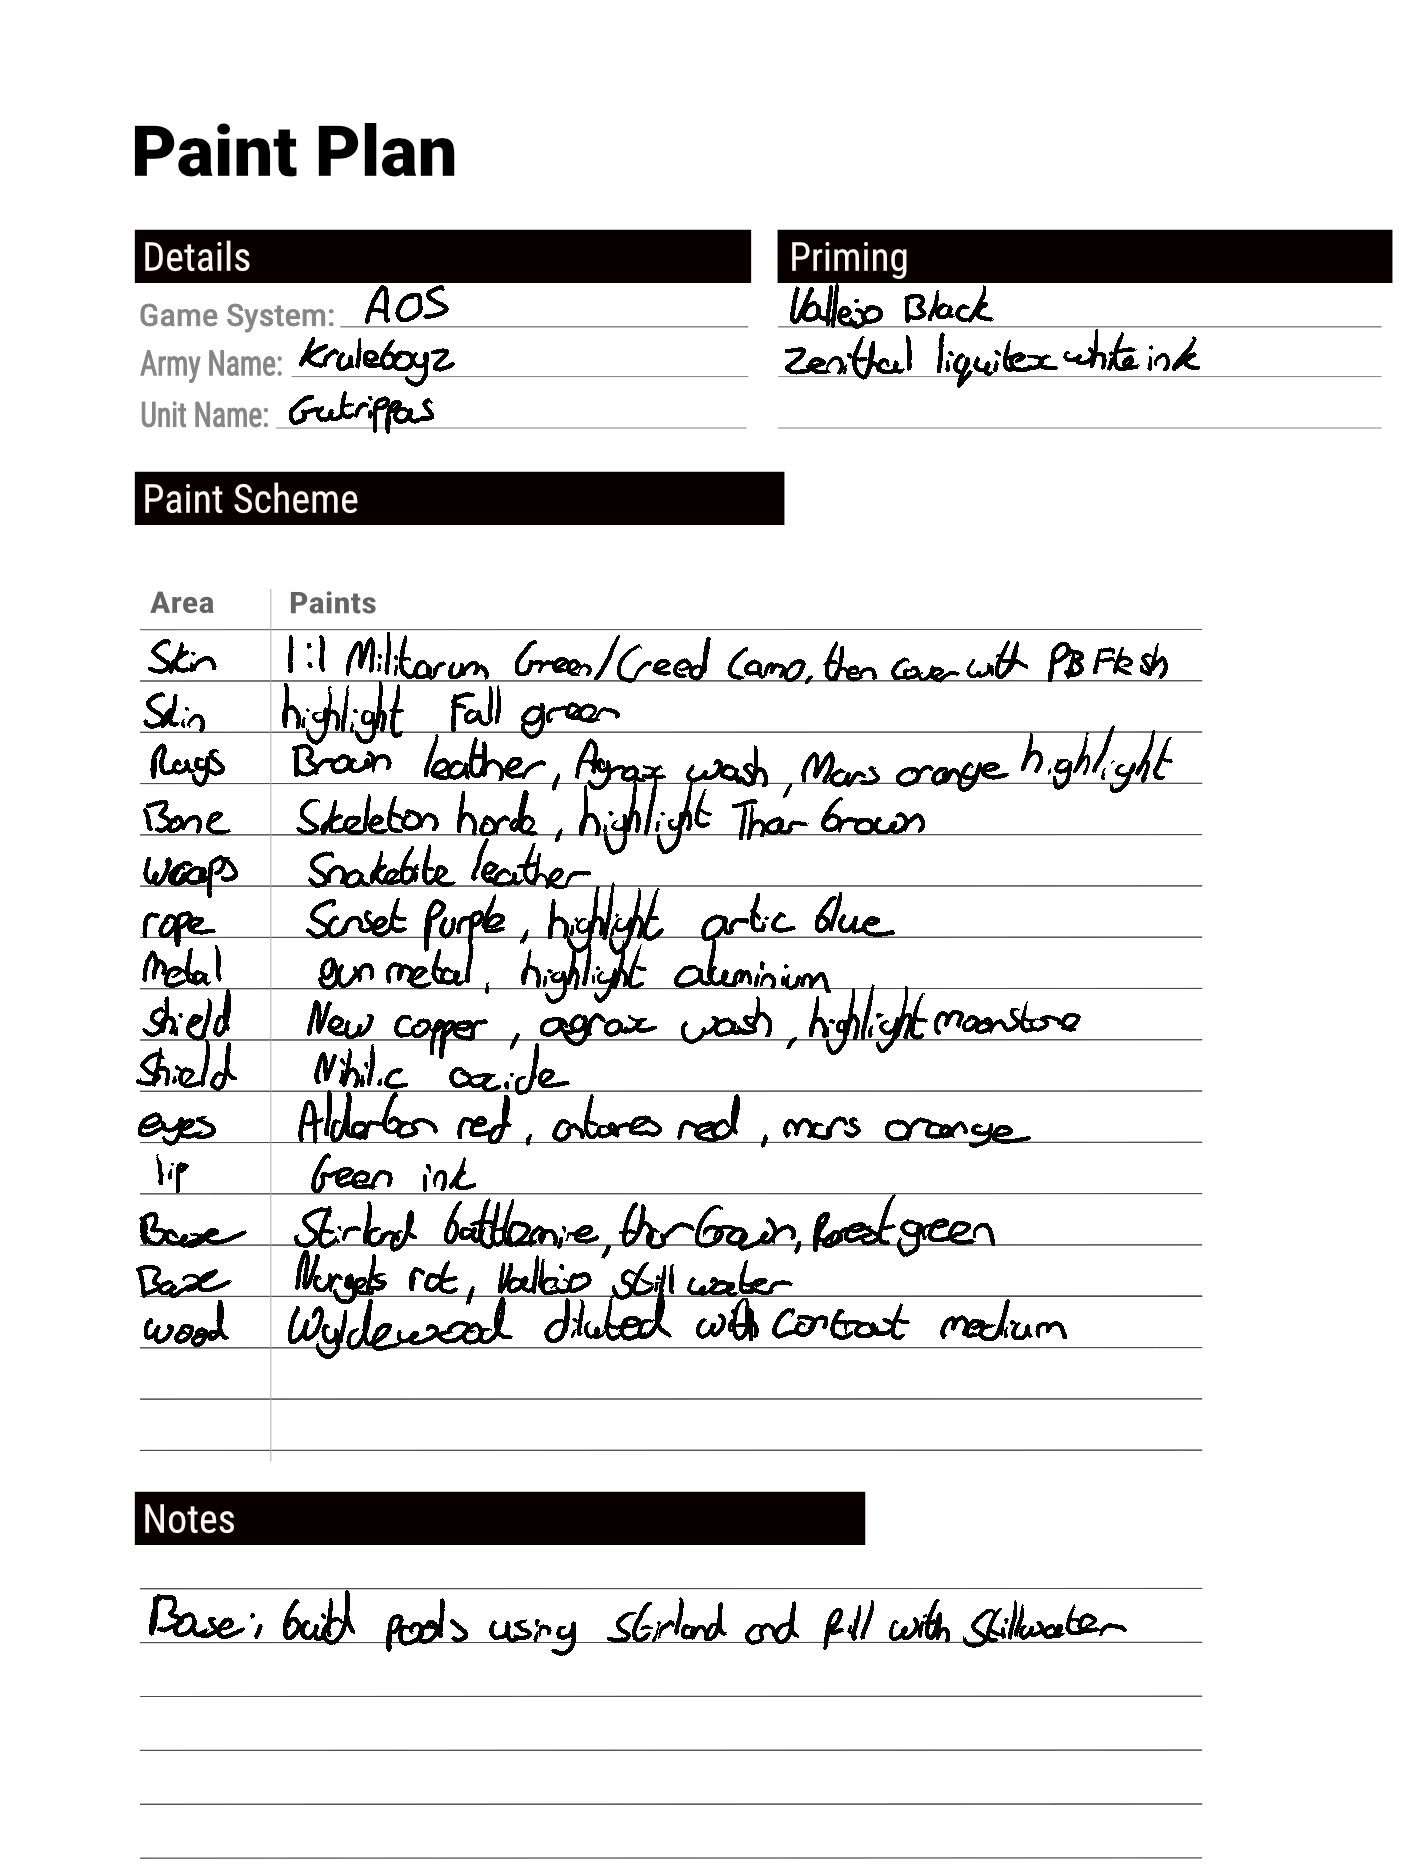 Paint Plan
Details
Priming
Game System: AOS
Vallejo Black
Army Name: Kruleboyz
Zenithal liquitex white ink
Unit Name: Gutrippas
Paint Scheme
Area Paints
Skin 1:1 Militarum Green/Creed Camo, then cover with PB Flesh
Skin highlight Fall green
Rags Brown leather, Agrax wash, Mars orange highlight
Bone Skeleton horde, highlight Thar brown
wraps Snakebite leather
rope Sunset Purple, highlight artic blue
Metal gun metal, highlight aluminium
shield New copper, agrax wash, highlight moonstone
Shield Nihilic oxide
eyes Aldarban red, antares red, mars orange
lip Geen ink
Base Stirland battlemire, thar brown, Forest green
Base Nurgels rot, Vallejo still water
wood Wyldewood diluted with Contrast medium
Notes
Base; build pools using Stirland and fill with Stillwater